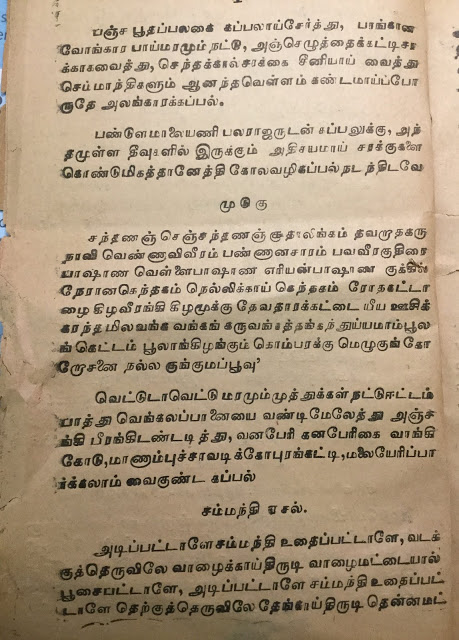 பஞ்ச பூதப்பலகை கப்பலாய்சேர்த்து, பாங்கான
வோங்கார பாய்மரமும் நட்டு, அஞ்செழுத்தைக்கட்டிசர
க்காகவைத்து, செந்தக்கால்சாக்கை சீனியாய் வைத்து
செம்மாந்திகளும் ஆனந்தவெள்ளம் கண்டமாய்ப்போ
ருதே அலங்காரக்கப்பல்.
பண்டுளமாலையணி பலராஜருடன் கப்பலுக்கு, அந்
தமுள்ள தீவுகளில் இருக்கும் அதிசயமாய் சரக்குகளை
கொண்டுமிகத்தானேத்தி கோலவழிகப்பல் நடந்திடவே
முடுகு
சந்தணஞ் செஞ்சந்தணஞ் சூதாலிங்கம் தவரூதகரு
நாவி வெண்ணவிவீரம் பண்ணனசாரம் பவவீரகுதிரை
பாஷாண வெள்ளைபாஷாண எரியன்பாஷாண குக்கில்
நேரானகெந்தகம் நெல்லிக்காய் கெந்தகம் ரோதகட்டா
ழைகிழவீரங்கி கிழமூக்கு தேவதாரக்கட்டை யீய ஊசிக்
காந்த மிலவங்க வங்கங் கருவங்கத்தங்கந்துய்யமாம்பூல
ங்கெட்டம் பூலாங்கிழங்கும் கொம்பரக்கு மெழுகுங்கோ
றோசனை நல்ல குங்குமப்பூவு'
வெட்டுடாவெட்டு மரமும்முத்துக்கள் நட்டு ஈட்டம்
பாத்து வெங்கலப்பானையை வண்டிமேலேத்து அஞ்ச
ங்கி பீரங்கிடண்டடித்து, வனபேரி கனபேரிகை வாங்கி
கோடு, மாணாம்புச்சாவடிக்கோபுரங்கட்டி, மலையேரிப்பா
ர்க்கலாம் வைகுண்ட கப்பல்
சம்மந்தி ஏசல்.
அடிப்பட்டாளே சம்மந்தி உதைப்பட்டாளே, வடக்
குத்தெருவிலே வாழைக்காய்திருடி வாழைமட்டையால்
பூசைபட்டாளே, அடிப்பட்டாளே சம்மந்தி உதைப்பட்
டாளே தெற்குத்தெருவிலே தேங்காய்திருடி தென்னமட்